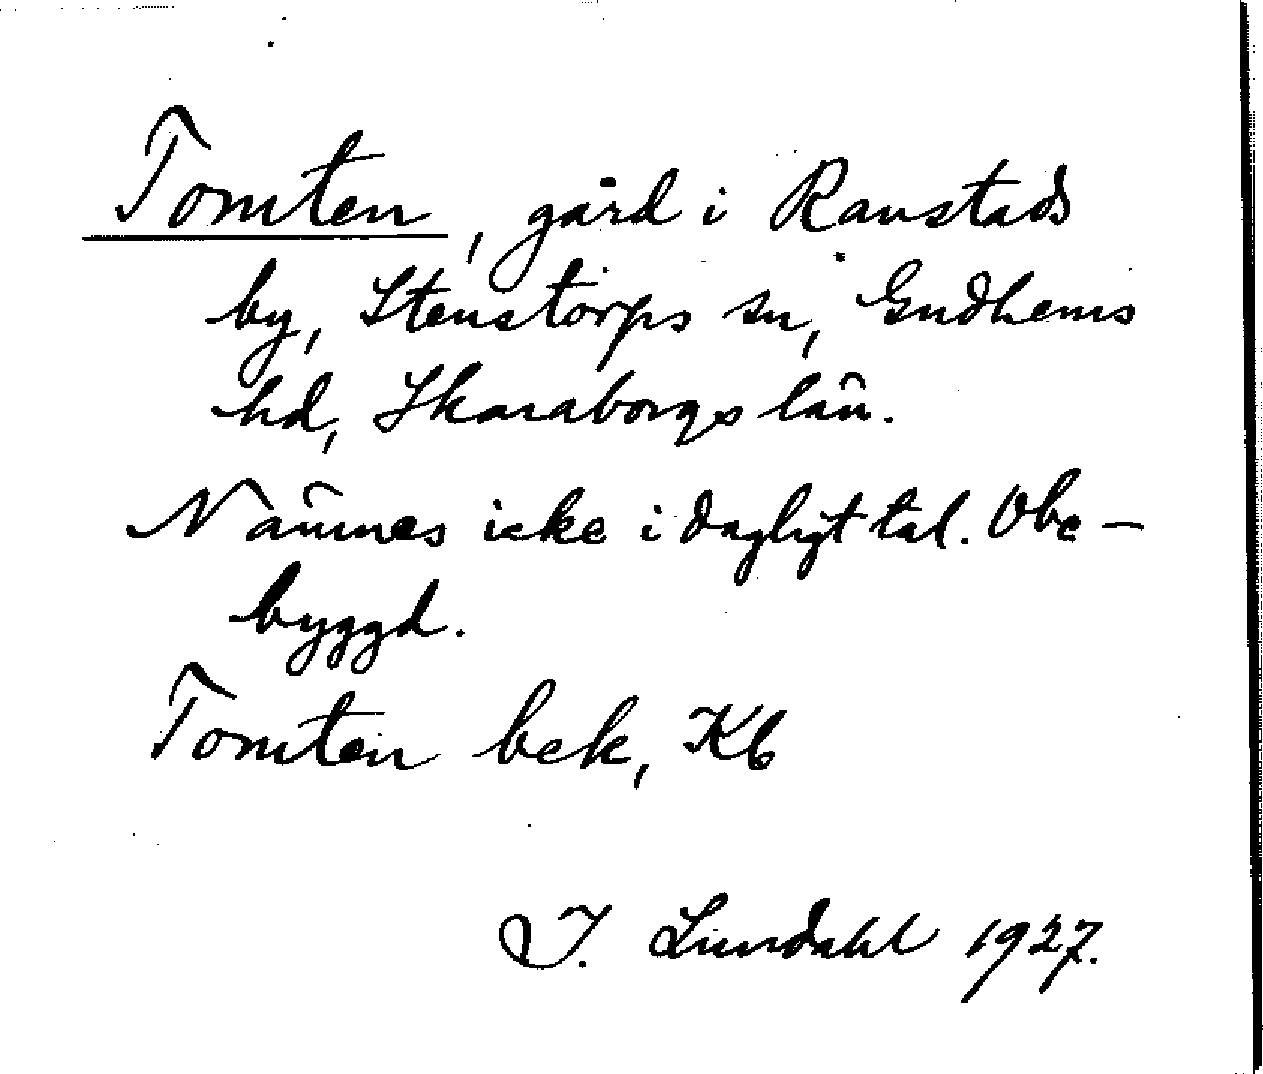 Tomten, gård i Ranstads
by, Stenstorps sn, Gudhems
hd, Skaraborgs län.
Nämnes icke i dagligt tal. Obe-
byggd.
Tomten bek, Kb
I. Lundahl 1927.